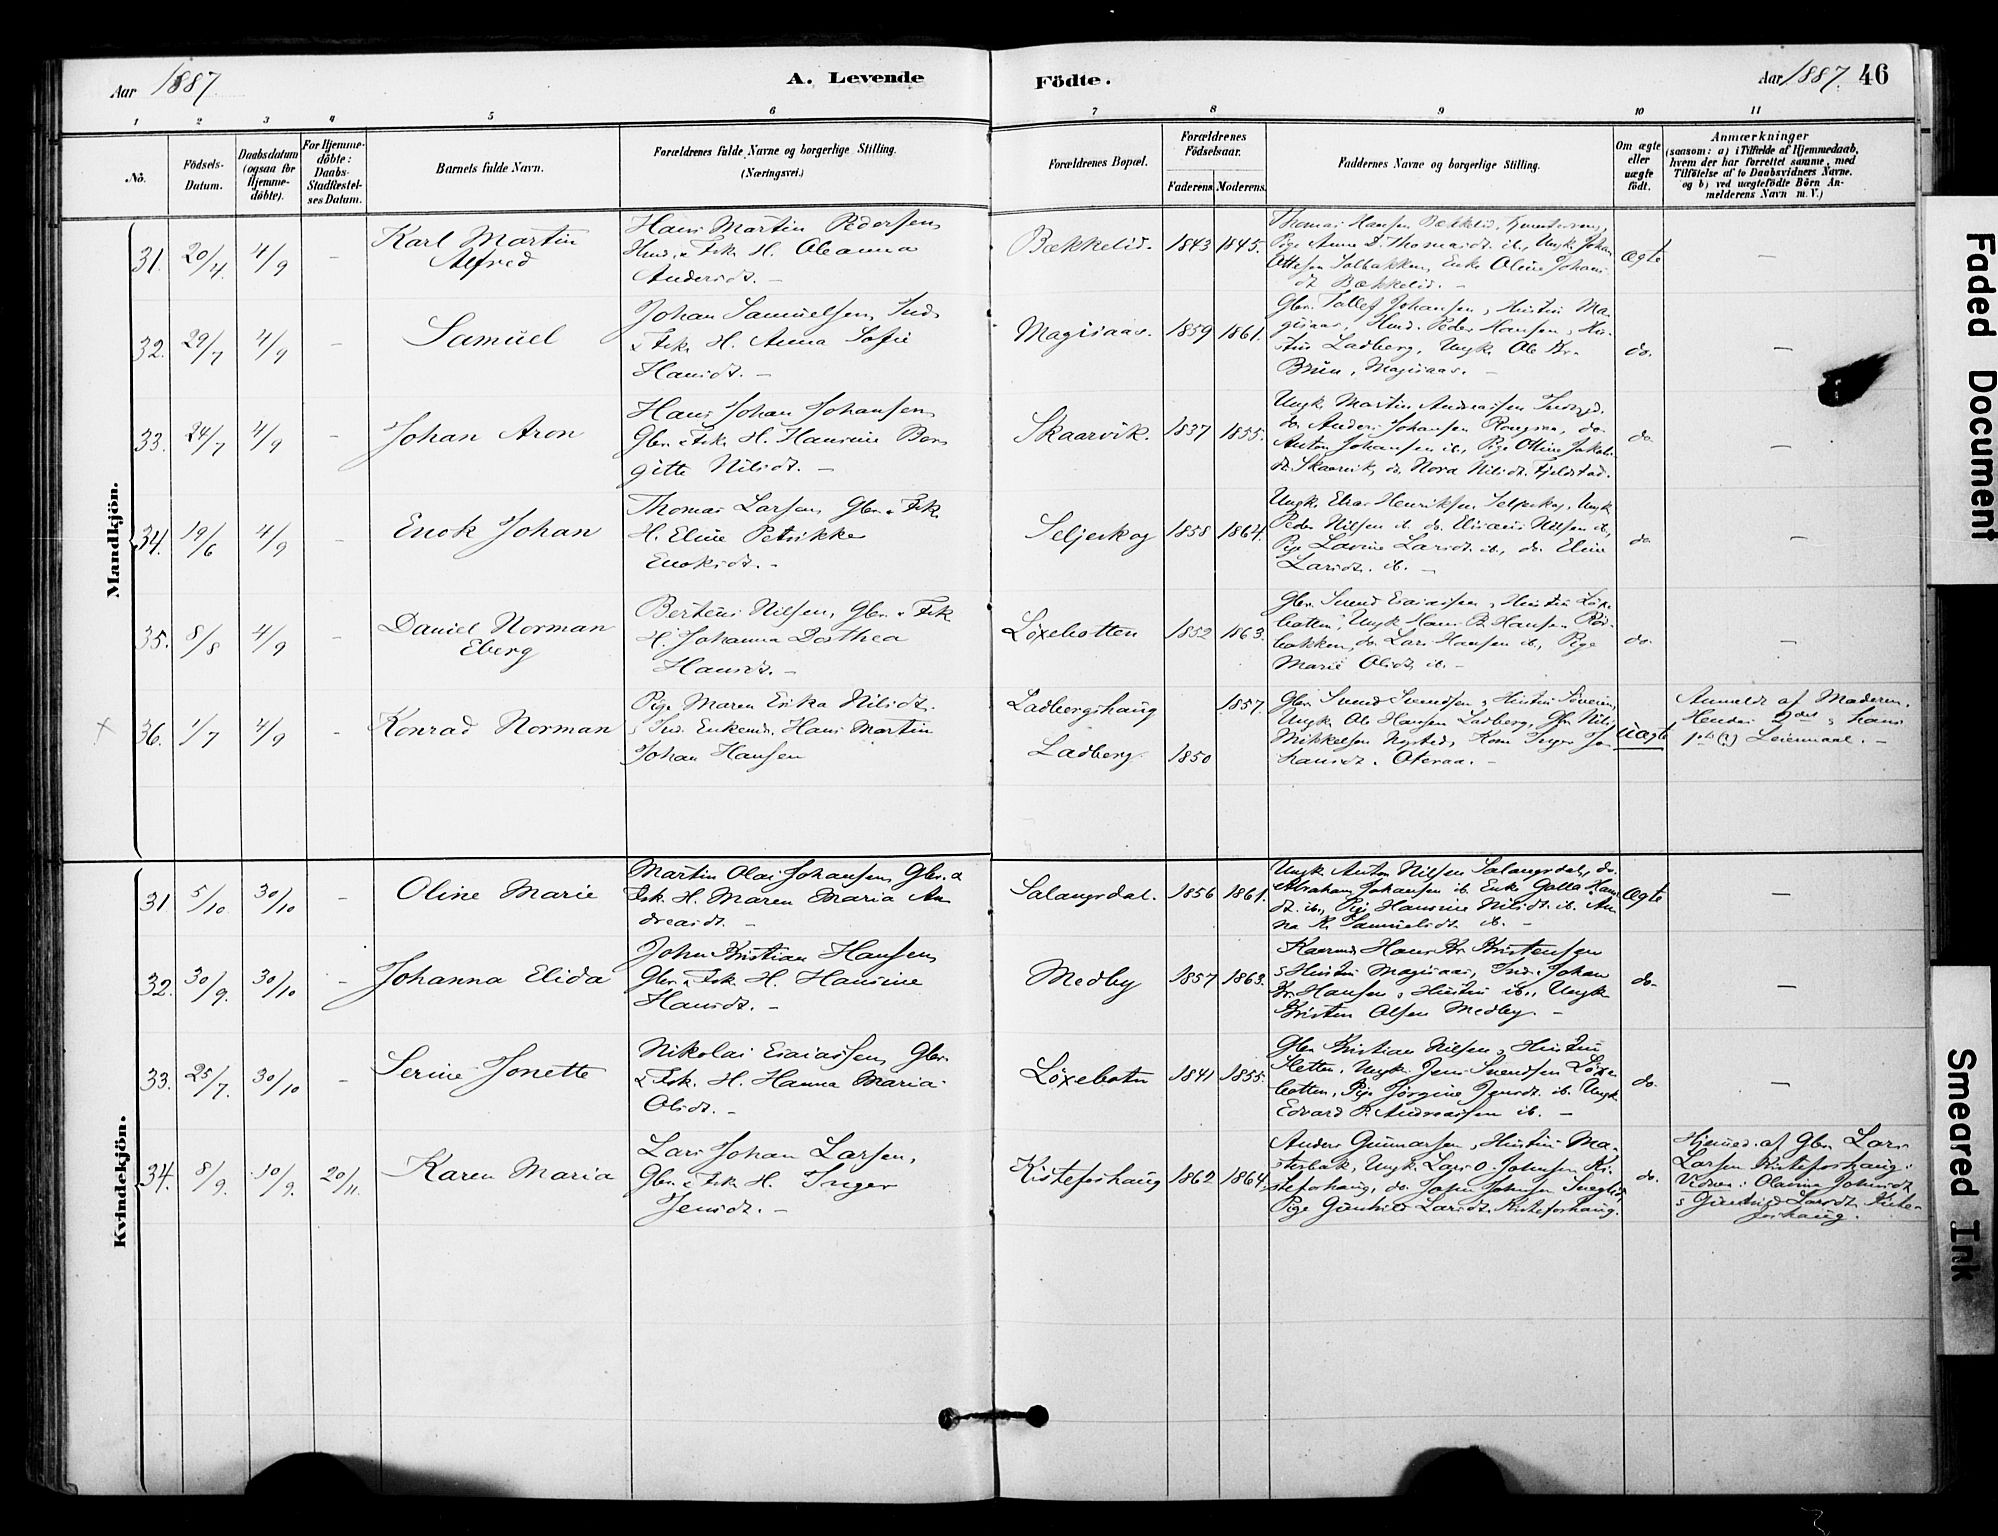 Aar 1887
A. Levende
Födte.
Aar 1887. 46
1 2 3 4 5 6 7 8 9 10 11
No.
Födsels-
Datum.
Daabsdatum
(ogsaa for
Hjemme-
döbte).
For Hjemme-
döbte:
Daabs-
Stadfæstel-
ses Datum.
Barnets fulde Navn.
Forældrenes fulde Navne og borgerlige Stilling.
(Næringsvei.)
Forældrenes Bopæl.
Forældrenes
Födselsaar.
Faderens Moderens.
Faddernes Navne og borgerlige Stilling.
Om ægte
eller
uægte
födt.
Anmærkninger
(saasom: a) i Tilfælde af Hjemmedaab,
hvem der har forrettet samme, med
Tilföielse af to Daabsvidners Navne.
og b) ved uægtefödte Börn An-
melderens Navn m. V.)
Mandkjön.
31. 20/4. 4/9 -
Karl Martin
Alfred
Hans Martin Pedersen,
Hmd. & Fsk. H. Oleanna
Andersdt. -
Bækkelid. 1843 1845.
Thomas Hansen Bækkelid,
Pige Anne D. Thomasdt. ib., Ungk. Johan
Ottesen Solbakken, Enke Oline Johans
dt. Bækkelid. -
Ægte
-
32. 29/7 4/9 -
Samuel
Johan Samuelsen, Ind.
& Fsk. H. Anna Sofie
Hansdt. -
Magisaas. 1859 1861.
Gbr. Tollef Johansen, Hustru Ma-
gisaas, Hmd. Peder Hansen, Hu-
stru Ladberg, Ungk. Ole Kr.
Bruun, Magisaas. -
do.
-
33. 24/7 4/9 -
Johan Aron
Hans Johan Johansen,
Gbr. & Fsk. H. Hansine Ber-
gitte Nilsdt. -
Skaarvik. 1837 1855.
Ungk. Martin Andreassen
do. Anders Johansen do.
Anton Johansen ib., Pige Oline Jakobs
dt. Skaarvik, do. Nora Nilsdt. Fjeldstad.
do.
-
34. 19/6 4/9 -
Enok Johan
Thomas Larsen, Gbr. & Fsk.
H. Eline Petrikke
Enoksdt. -
Seljeskog 1858 1864.
Ungk. Elias Henriksen Seljeskog, Ungk.
Peder Nilsen ib. do. Nilsen ib.
Pige Lovine Larsdt. ib., do. Eline
Larsdt. ib. -
do.
-
35. 8/8 4/9 -
Daniel Norman
Eberg
Berteus Nilsen, Gbr. & Fsk
H. Johanna Dorthea
Hansdt. -
Löxebotten 1852 1863.
Gbr. Svend Esaiassen, Hustru Löxe
botten, Ungk. Hans P. Hansen Rös-
bakken, do. Lars Hansen ib., Pige
Marie Olsdt. ib. -
do.
-
×
36. 1/7 4/9 -
Konrad Norman
Pige Maren Erika Nilsdt.
& Ind. Enkemd. Hans Martin
Johan Hansen
Ladbergshaug 1857.
Ladberg. 1850
Gbr. Svend Svendsen, Hustru
Ungk. Ole Hansen Ladberg, Gbr. Nils
Mikkelsen Nysted, Kone Inger Jo-
hansdt. Oteraa. -
Uægte
Anmeldt af Moderen.
Hendes 2det, hans
1ste (?) Leiermaal. -
Kvindekjön.
31 5/10. 30/10 -
Oline Marie
Martin Olai Johansen, Gbr. &
Fsk. H. Maren Maria An-
dreasdt. -
Salangsdal. 1856 1861.
Ungk. Anton Nilsen Salangsdal, do.
Abraham Johansen ib. Enke Golla Hans
dt. ib., Pige Hansine Nilsdt. ib. An-
na K. Samuelsdt. ib. -
Ægte
-
32. 30/9. 30/10 -
Johanna Elida
John Kristian Hansen,
Gbr. & Fsk. H. Hansine
Hansdt. -
Medby 1857 1863.
Kaarmd. Hans Kr. Kristensen
& Hustru Magisaas, Ind. Johan
Kr. Hansen, Hustru ib., Ungk.
Kristen Olsen Medby. -
do.
-
33. 25/7. 30/10 -
Serine Jonette
Nikolai Esaiassen, Gbr.
& Fsk. H. Hanna Maria
Olsdt. -
Löxebotn 1841 1855.
Gbr. Kristian Nilsen, Hustru
Sletten, Ungk. Jens Svendsen Löxe
botten, Pige Jörgine Jensdt. ib. Ungk.
Edvard P. Andreassen ib. -
do.
-
34. 8/9. 10/9. 20/11.
Karen Maria
Lars Johan Larsen,
Gbr. & Fsk. H. Inger
Jensdt. -
Kisteforshaug 1862 1864.
Anders Gunnarsen, Hustru Ma-
sterbak, Ungk. Lars O. Johnsen Ki-
steforshaug, do. John Johnsen
Pige Gunhild Larsdt. Kisteforshaug.
do.
Hjemmed. af Gbr. Lars
Larsen Kisteforshaug.
Vidner: Olavina Johnsdt.
& Gunhild Larsdt. Kiste-
forshaug.
Faded Document
Smeared Ink